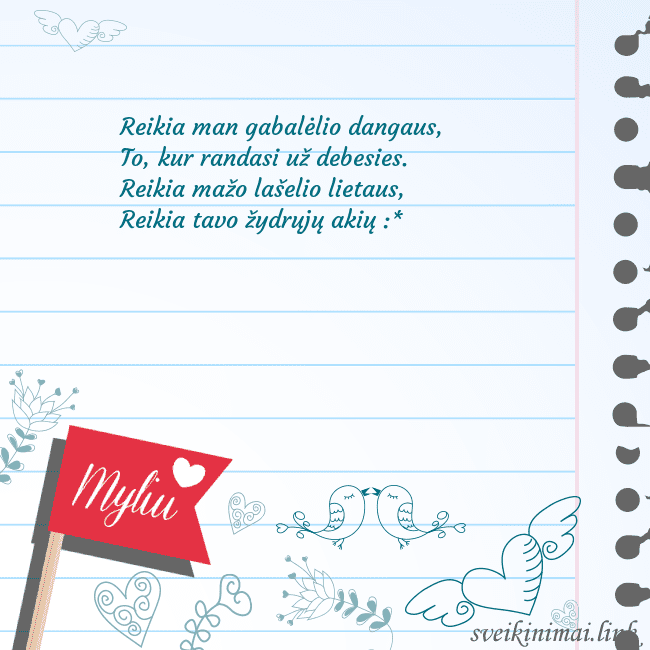 Reikia man gabalėlio dangaus,
To, kur randasi už debesies.
Reikia mažo lašelio lietaus,
Reikia tavo žydrųjų akių :*
Myliu
sveikinimai.link